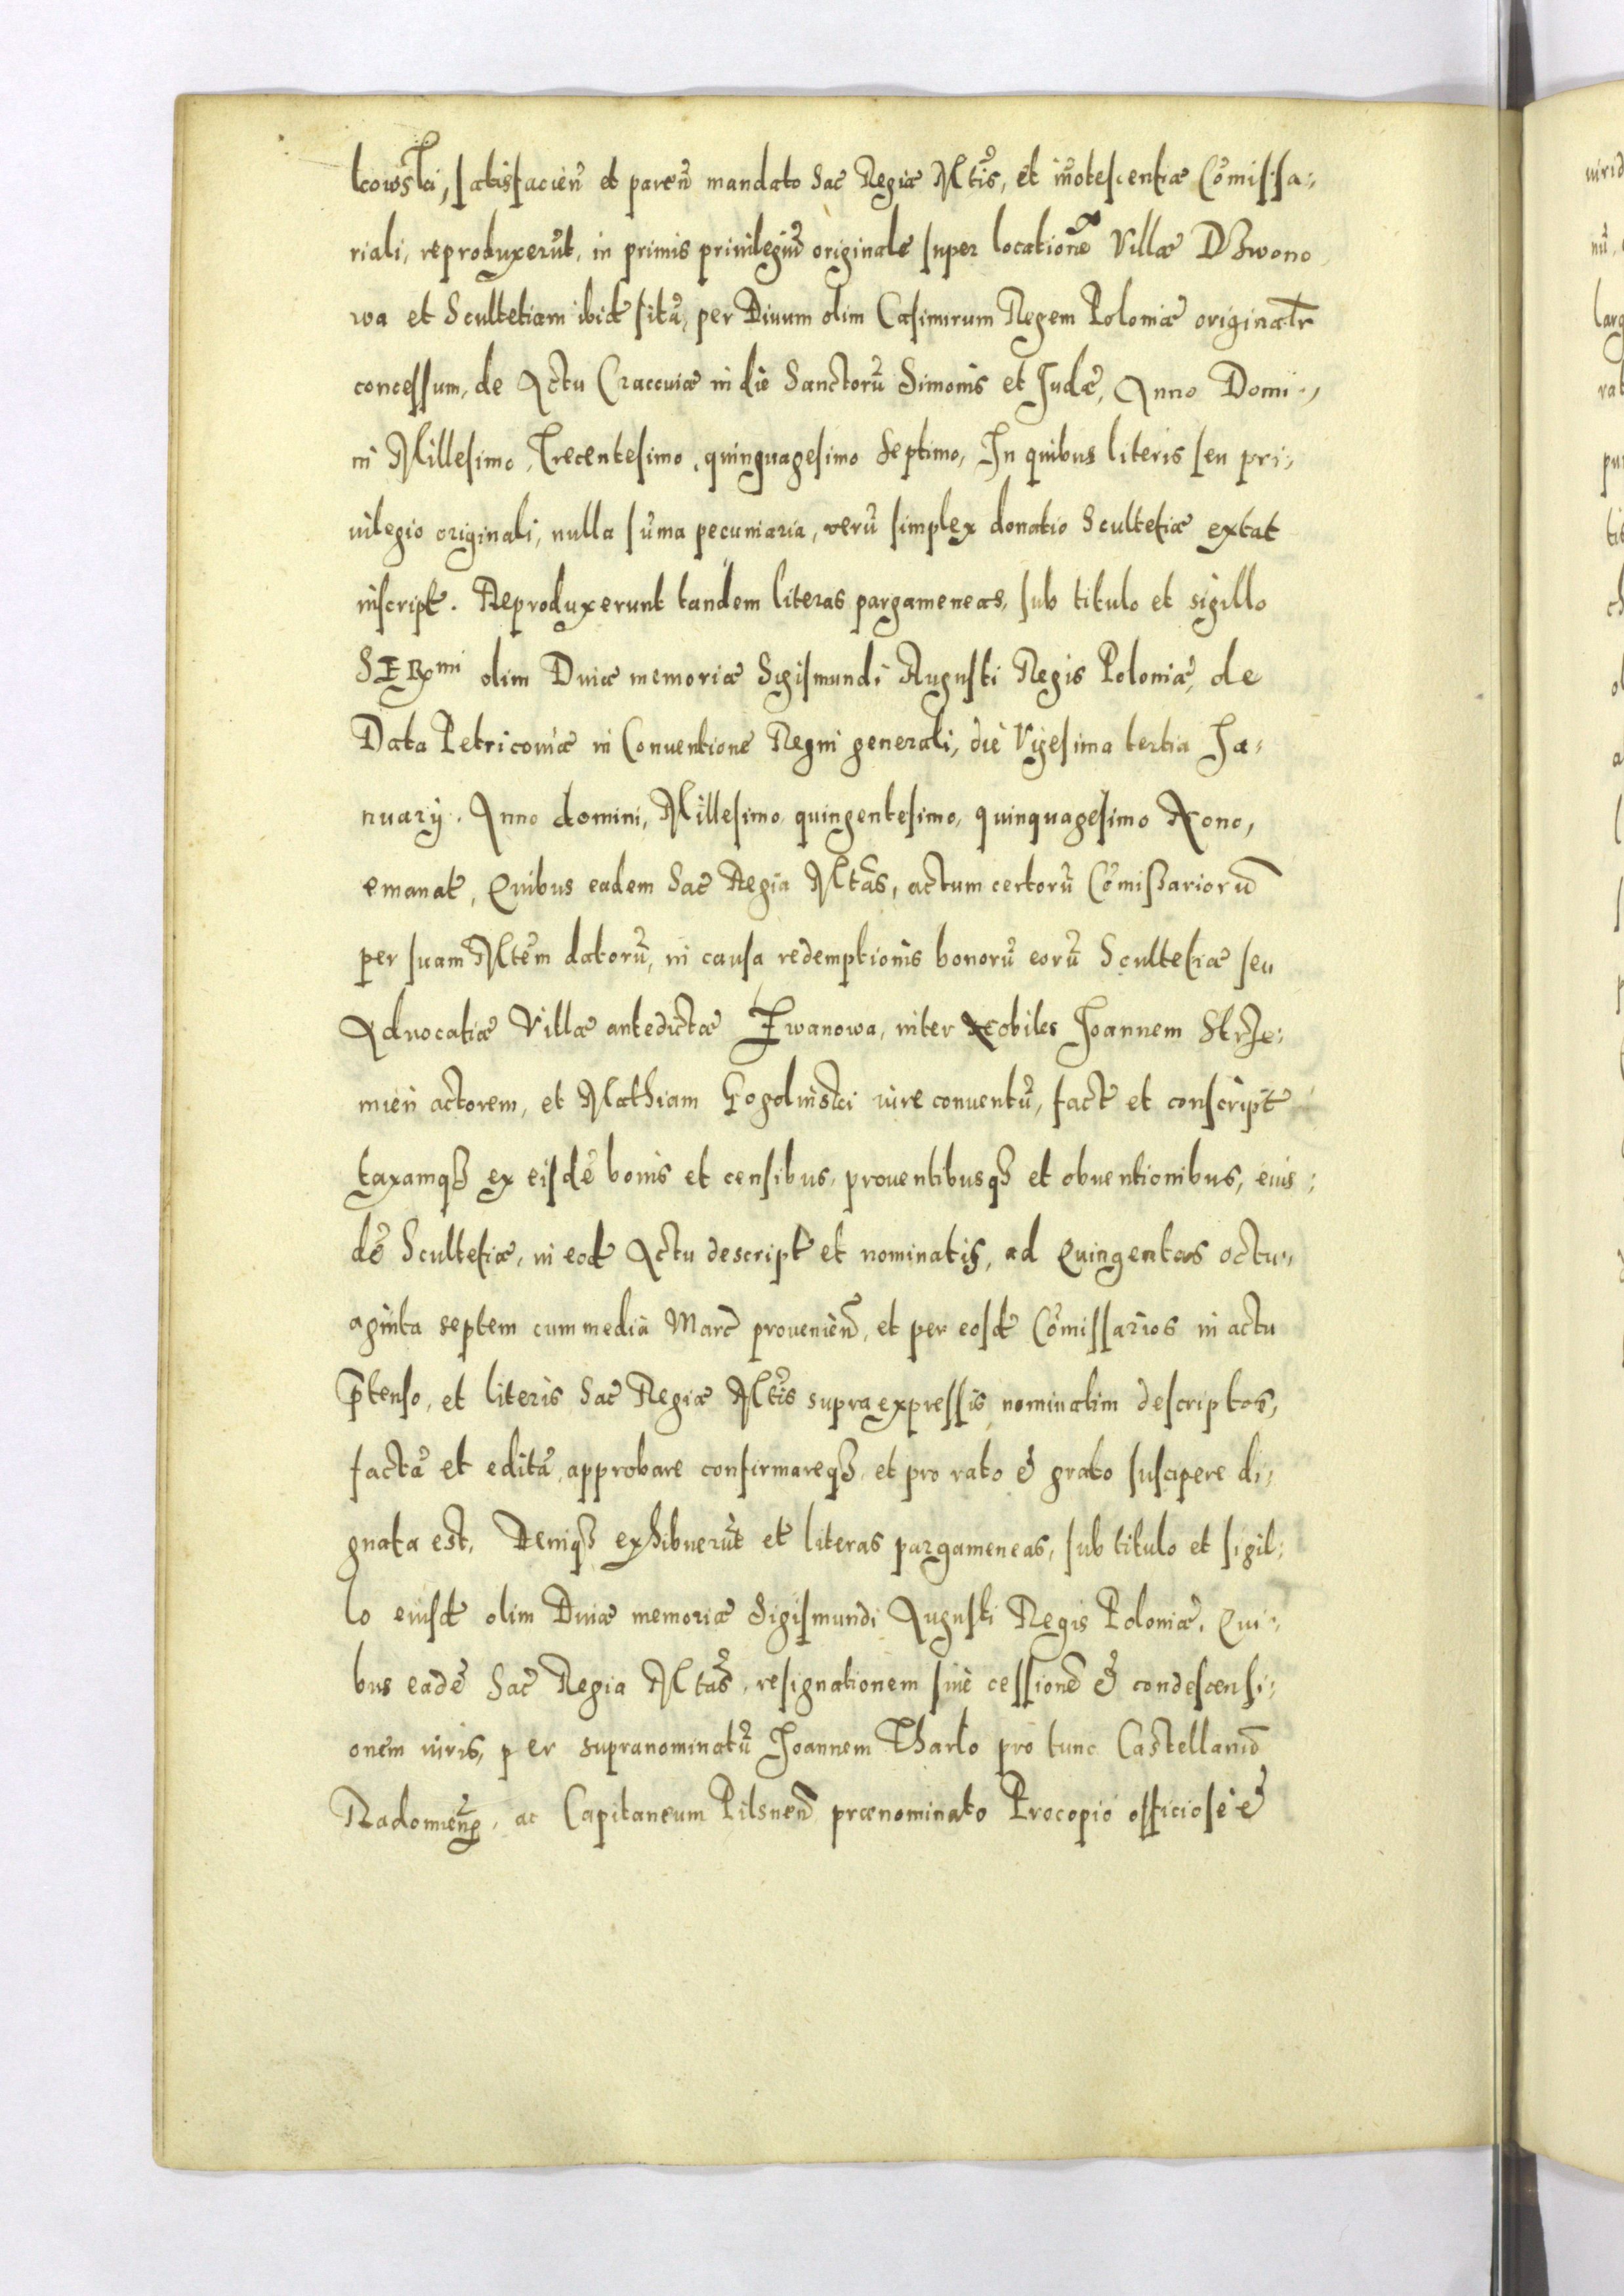 kowski, satisfacień et pareń mandato Sac Regiæ Mtis, et iñotescentiæ Cõmissa:
riali, reproduxerũt, in primis priuilegiũ originale super locationẽ Villæ Dzwono
wa et Scultetiam ibid sitã, per Diuum olim Casimirum Regem Poloniæ originalr
concessum, de Actu Cracouiæ in die Sanctorũ Simonis et Judæ, Anno Domi:
ni Millesimo, Trecentesimo, quinquagesimo Septimo, In quibus literis seu pri:
uilegio originali, nulla sũma pecuniaria, verũ simplex donatio Scultetiæ extat
inscript. Reproduxerunt tandem literas pargameneas, sub titulo et sigillo
SERmi olim Diuæ memoriæ Sigismundi Augusti Regis Poloniæ, de
Data Petricouiæ in Conuentione Regni generali, die Vigesima tertia Ja:
nuarÿ. Anno domini, Millesimo quingentesimo, quinquagesimo Nono,
emanat, Quibus eadem Sac Regia Mtas, actum certorũ Cõmißariorũ
per suam Mtem datorũ, in causa redemptionis bonorũ eorũ Scultetiæ seu
Aduocatiæ Villæ antedictæ Zwanowa, inter Nobiles Joannem Strze:
mień actorem, et Mathiam Gogolinski iure conuentũ, fact et conscript
taxamqз ex eisdẽ bonis et censibus, prouentibusqз et obuentionibus, eius:
dẽ Scultetiæ, in eod Actu descript et nominatis, ad Quingentas octu:
aginta septem cum media Marc prouenień, et per eosd Cõmissarios in actu
p̃tenso, et literis Sac Regiæ Mtis supra expressis nominatim descriptos,
factã et editã approbare confirmareqз et pro rato & grato suscipere di:
gnata est. Deniqз exhibuerũt et literas pargameneas, sub titulo et sigil:
lo eiusd olim Diuæ memoriæ Sigismundi Augusti Regis Poloniæ. Qui:
bus eadẽ Sac Regia Mtas, resignationem siue cessionẽ & condescensi:
onem iuris, per supranominatũ Joannem Tharlo pro tunc Castellanũ
Radomień, ac Capitaneum Pilsneń prænominato Procopio officiose &